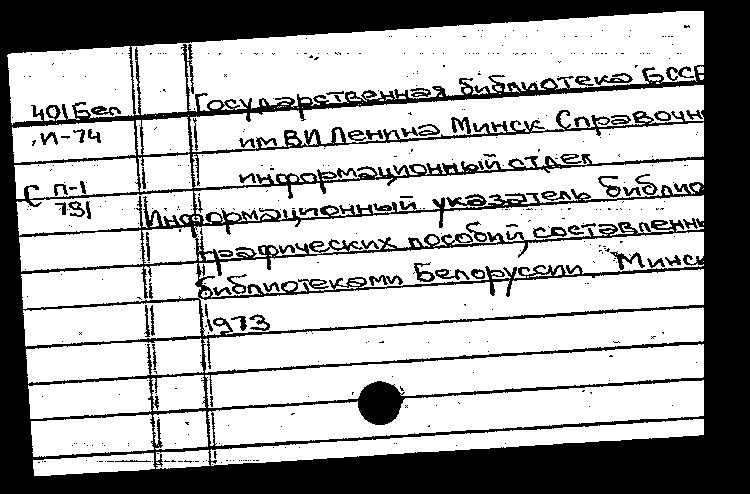 401Бел Государственная библиотека БССР
И-74 им ВИ Ленина Минск Справочн
информационный отдел
С П-1
791 Информационный указатель библио
графических пособий, составленны
библиотеками Белоруссии. Минск
1973